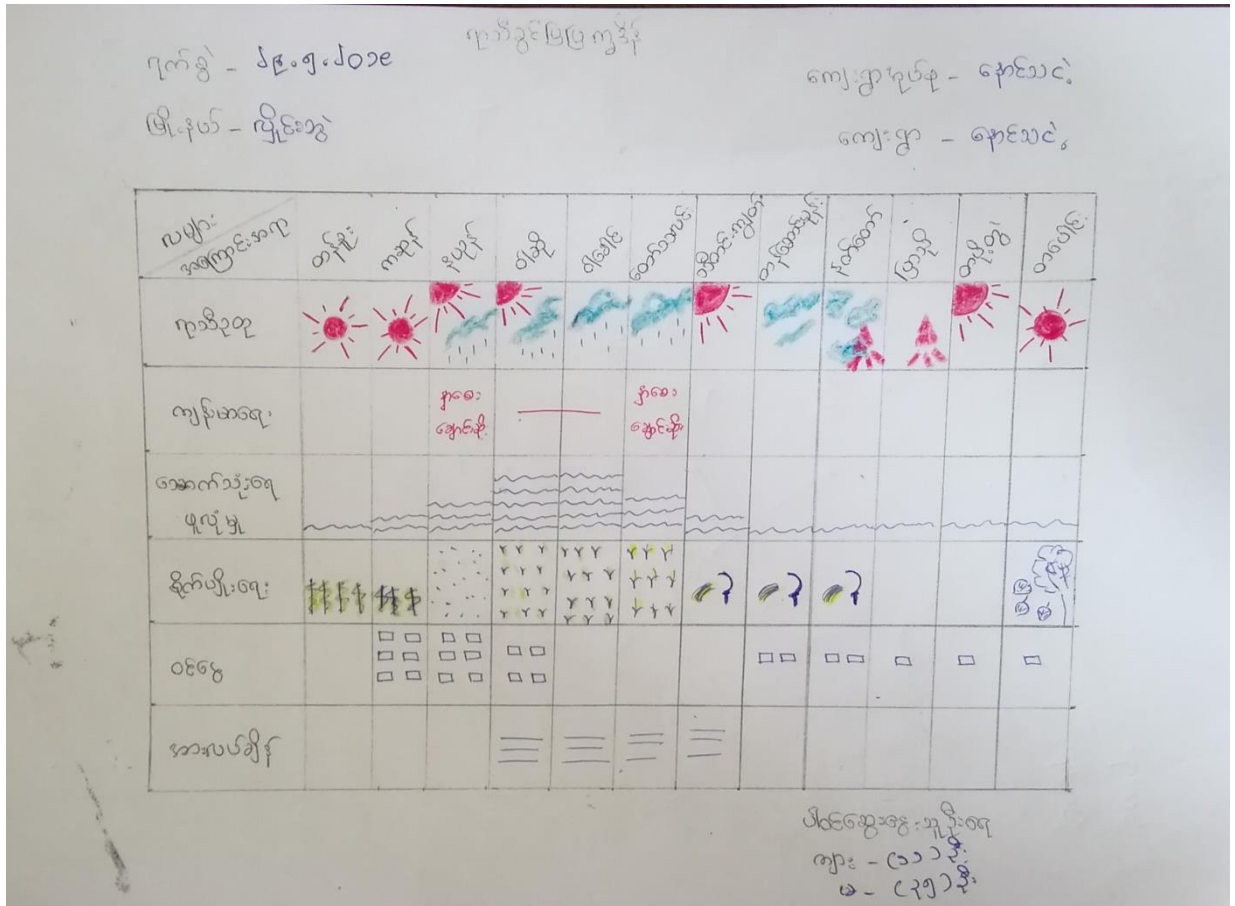 ရာသီခွင်ပြပြက္ခဒိန်
ရက်စွဲ - ၂၉.၅.၂၀၁၉
ကျေးရွာအုပ်စု - နောင်သင့်
မြို့နယ် - လှိုင်းဘွဲ
ကျေးရွာ - နောင်သင့်
လများ
အကြောင်းအရာ
တန်ခူး ကဆုန် နယုန် ဝါဆို ဝါခေါင် တော်သလင်း သီတင်းကျွတ် တန်ဆောင်မုန်း နတ်တော် ပြာသို တပို့တွဲ တပေါင်း
ရာသီဥတု
ကျန်းမာရေး
နှာစေး
ချောင်းဆိုး
နှာစေး
ချောင်းဆိုး
သောက်သုံးရေ
ဖူလုံမှု
စိုက်ပျိုးရေး
ဝင်ငွေ
အားလပ်ချိန်
ပါဝင်ဆွေးနွေးသူဦးရေ
ကျား - (၁၁) ဦး
မ - (၃၅) ဦး